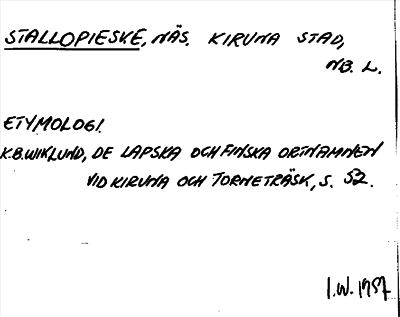 STALLOPIESKE, NÄS. KIRUNA STAD,
NB. L.
ETYMOLOGI.
K.B. WIKLUND, DE LAPSKA OCH FINSKA ORTNAMNEN
VID KIRUNA OCH TORNETRÄSK, S. 52.
I.W. 1957